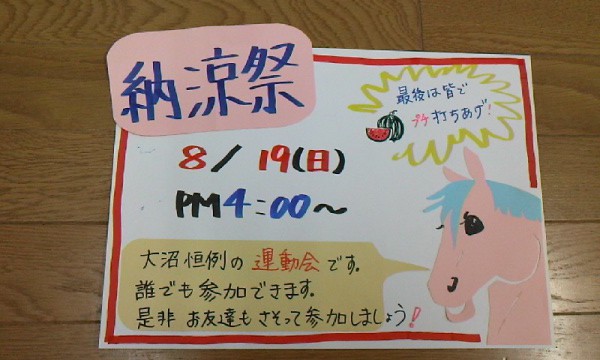 納涼祭
最後は皆で
プチ打ちあげ!
8/19(日)
PM4:00～
大沼恒例の運動会です。
誰でも参加できます。
是非お友達もさそって参加しましょう!